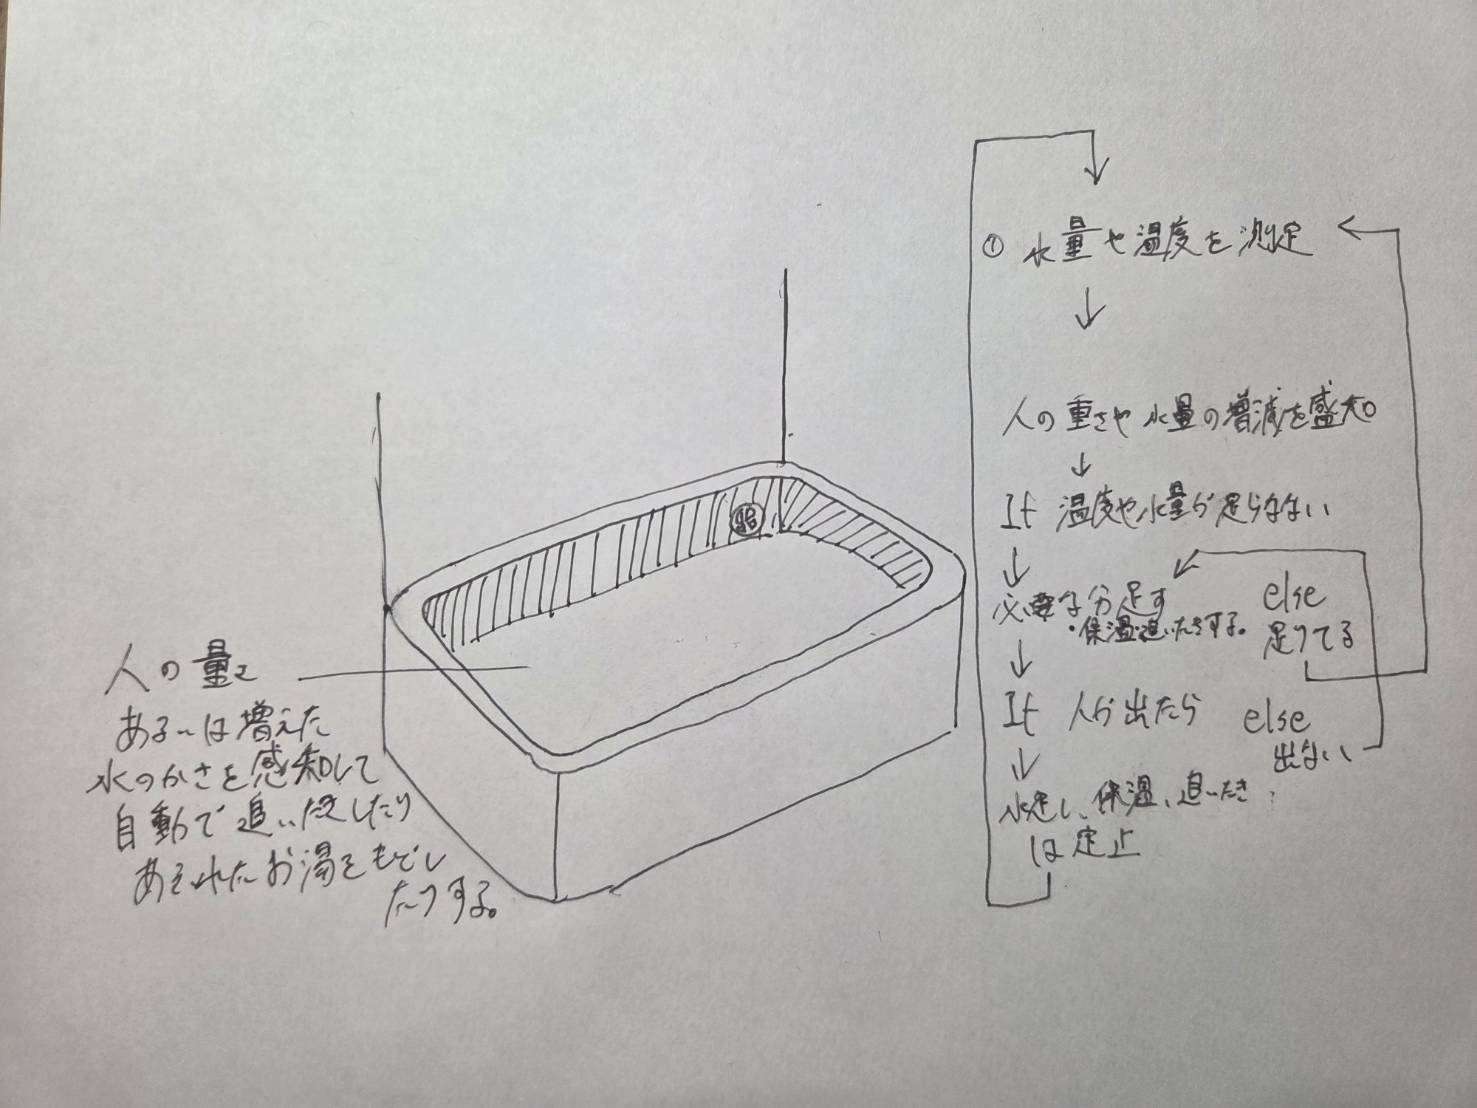 人の量さ
あるいは増えた
水のかさを感知して
自動で追い炊したり
あふれたお湯をもどし
たりする。
① 水量や温度を測定
↓
人の重さや水量の増減を感知
↓
If 温度や水量が足らなない
↓
必要な分足す
・保温・追いたきする。
else
足りてる
↓
If 人が出たら
else
出ない
↓
水足し、保温、追いたき
は定止